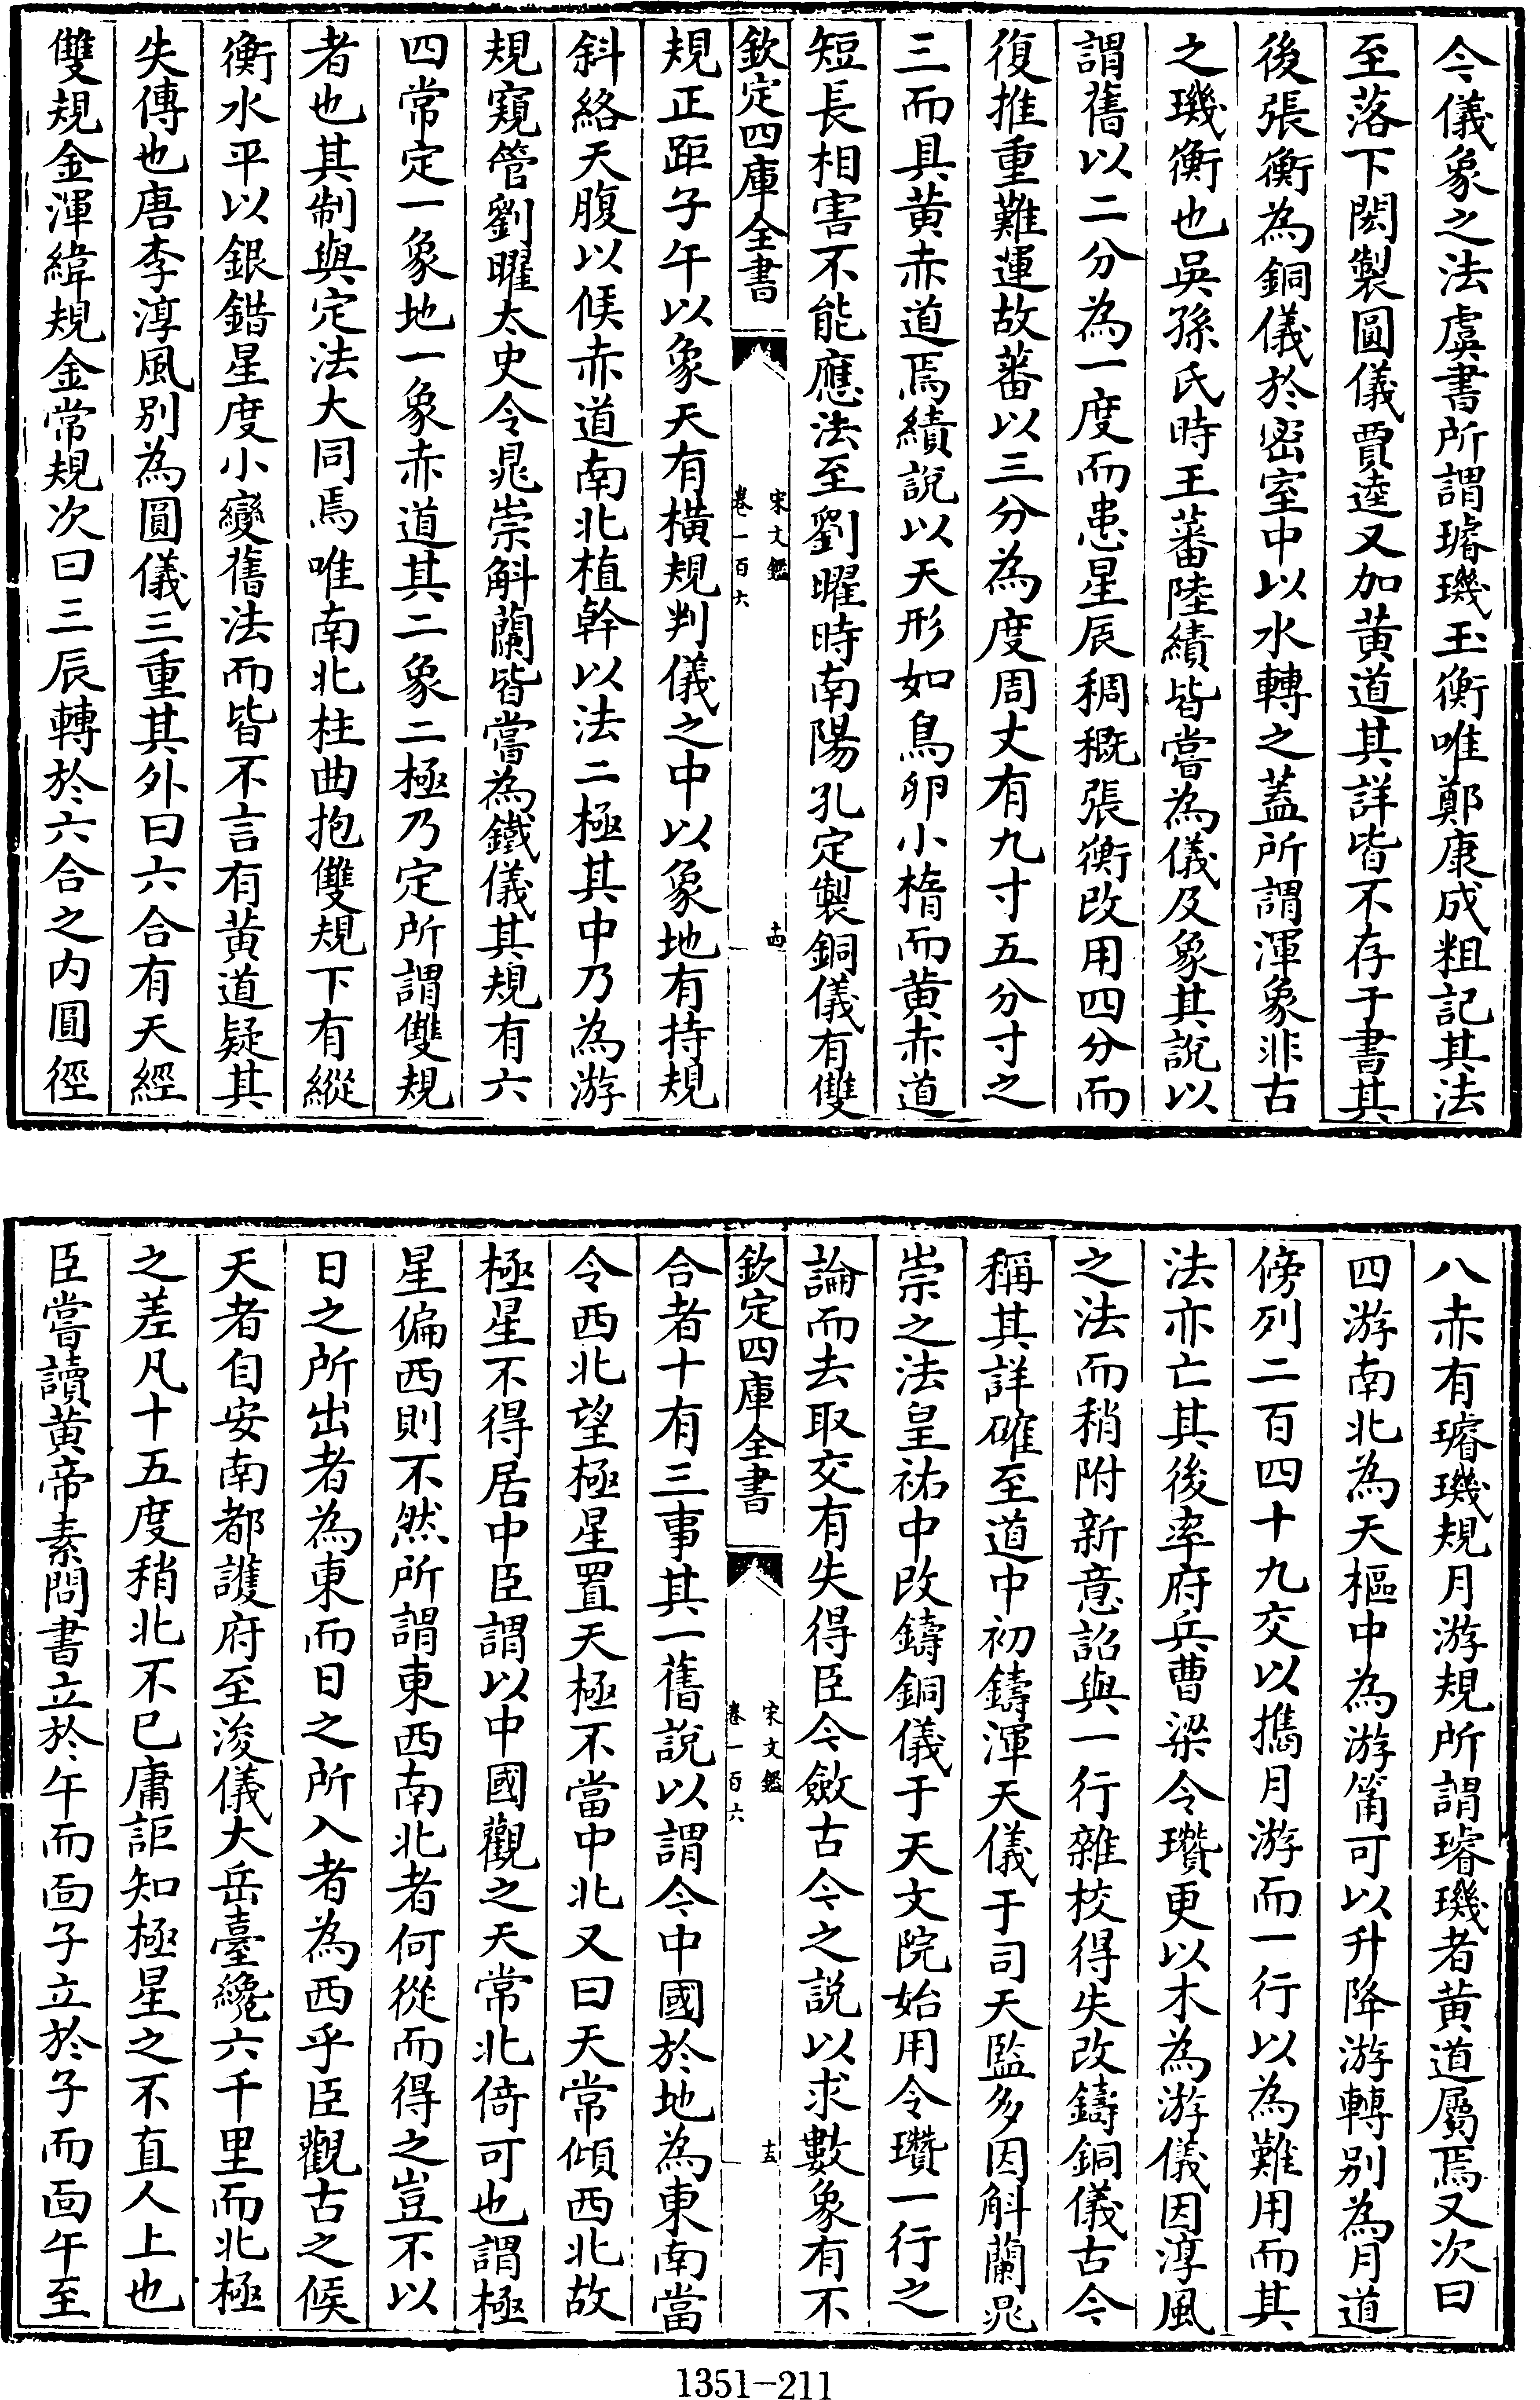 今儀象之法虞書所謂璿璣玉衡唯鄭康成粗記其法
至落下閎製圓儀賈逵又加黃道其詳皆不存于書其
後張衡為銅儀於密室中以水轉之蓋所謂渾象非古
之璣衡也吳孫氏時王蕃陸績皆嘗為儀及象其說以
謂舊以二分為一度而患星辰稠穊張衡改用四分而
復推重難運故蕃以三分為度周丈有九寸五分寸之
三而具黃赤道焉績說以天形如鳥卵小橢而黃赤道
短長相害不能應法至劉曜時南陽孔定製銅儀有雙
欽定四庫全書
宋文鑑
卷一百六
十四
規正距子午以象天有橫規判儀之中以象地有持規
斜絡天腹以候赤道南北植幹以法二極其中乃為游
規窺管劉曜太史令晁崇斛蘭皆嘗為鐵儀其規有六
四常定一象地一象赤道其二象二極乃定所謂雙規
者也其制與定法大同焉唯南北柱曲抱雙規下有縱
衡水平以銀錯星度小變舊法而皆不言有黃道疑其
失傳也唐李淳風別為圓儀三重其外曰六合有天經
雙規金渾緯規金常規次曰三辰轉於六合之內圓徑
八赤有璿璣規月游規所謂璿璣者黃道屬焉又次曰
四游南北為天樞中為游筩可以升降游轉別為月道
傍列二百四十九交以攜月游而一行以為難用而其
法亦亡其後率府兵曹梁令瓚更以木為游儀因淳風
之法而稍附新意詔與一行雜校得失改鑄銅儀古今
稱其詳確至道中初鑄渾天儀于司天監多因斛蘭晁
崇之法皇祐中改鑄銅儀于天文院始用令瓚一行之
論而去取交有失得臣今斂古今之說以求數象有不
欽定四庫全書
宋文鑑
卷一百六
十五
合者十有三事其一舊說以謂今中國於地為東南當
令西北望極星置天極不當中北又曰天常傾西北故
極星不得居中臣謂以中國觀之天常北倚可也謂極
星偏西則不然所謂東西南北者何從而得之豈不以
日之所出者為東而日之所入者為西乎臣觀古之候
天者自安南都護府至浚儀大岳臺纔六千里而北極
之差凡十五度稍北不已庸詎知極星之不直人上也
臣嘗讀黃帝素問書立於午而面子立於子而面午至
1351-211